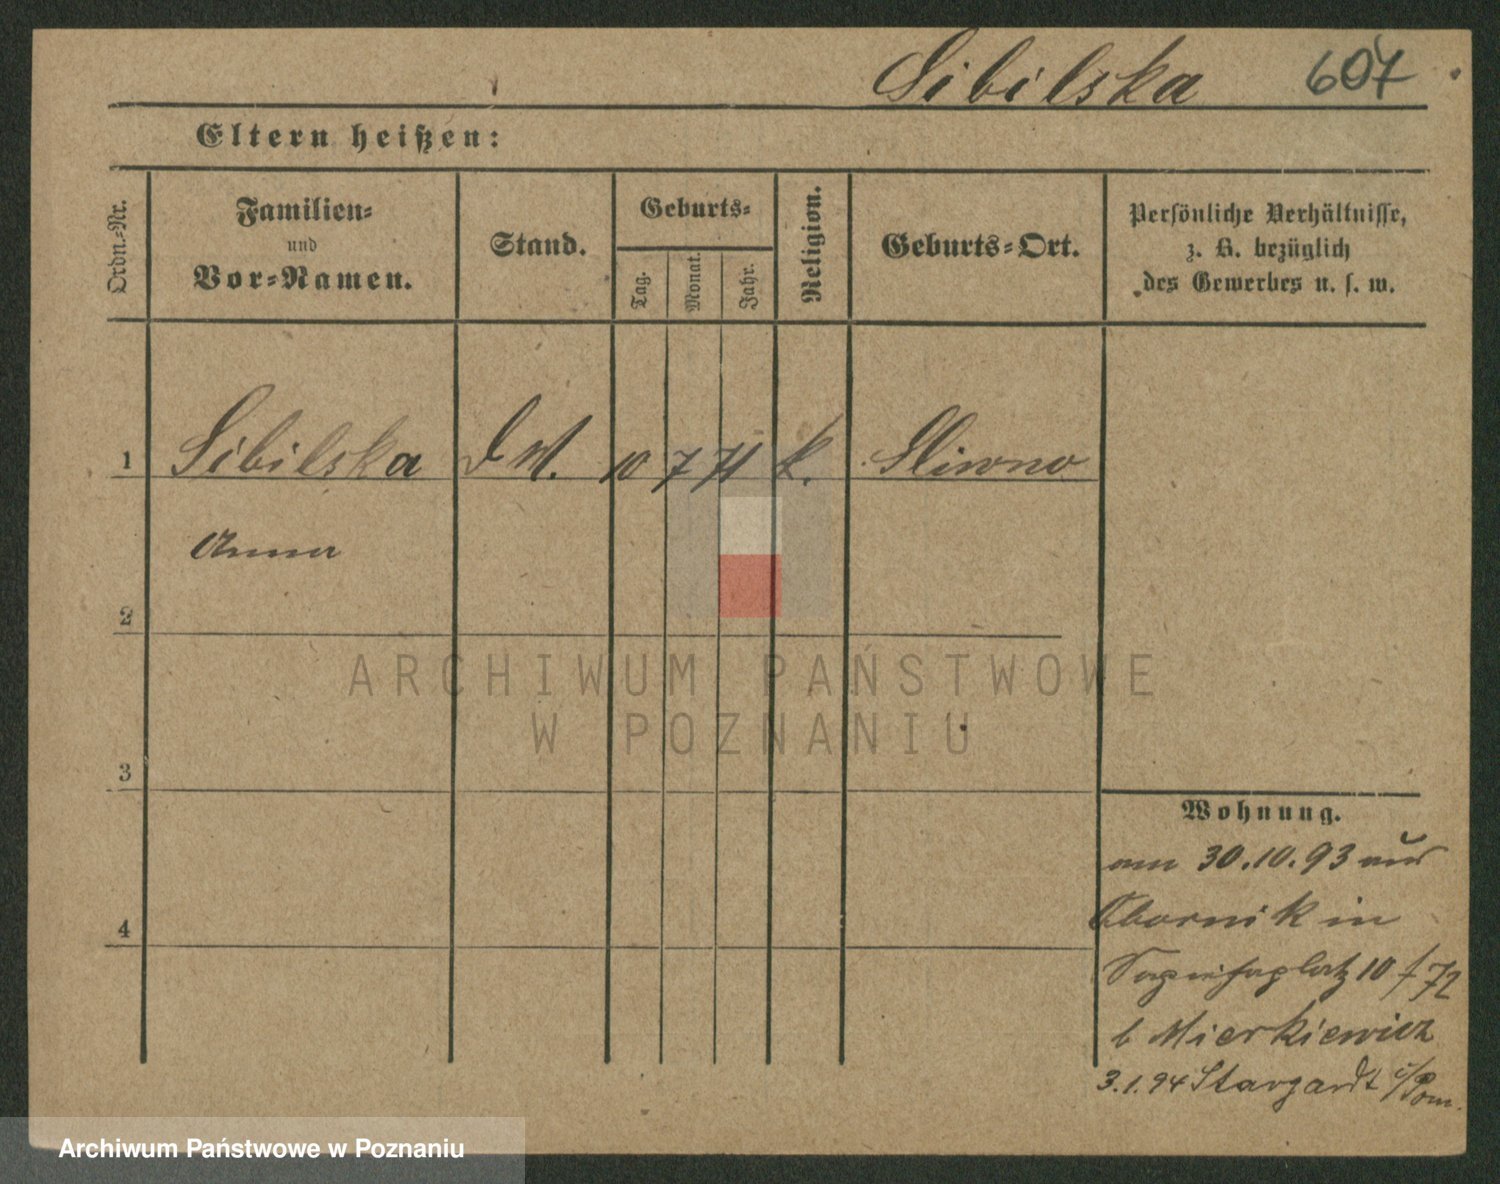 Sibilska 607
Eltern heißen:
Ordn.-Nr.
Familien-
und
Vor-Namen.
Stand.
Geburts-
Tag.
Monat.
Jahr.
Religion.
Geburts-Ort.
Persönliche Verhältnisse,
z. B. bezüglich
des Gewerbes u. s. w.
1 Sibilska D M. 10 7 71 k. Sliwno
Anna
2
3
4
Wohnung.
am 30.10.93 aus
Obornik in
Sapiehaplatz 10/
b Mierkiewicz
3.1.94 Stargardt i/Pom.
ARCHIWUM PAŃSTWOWE
W POZNANIU
Archiwum Państwowe w Poznaniu